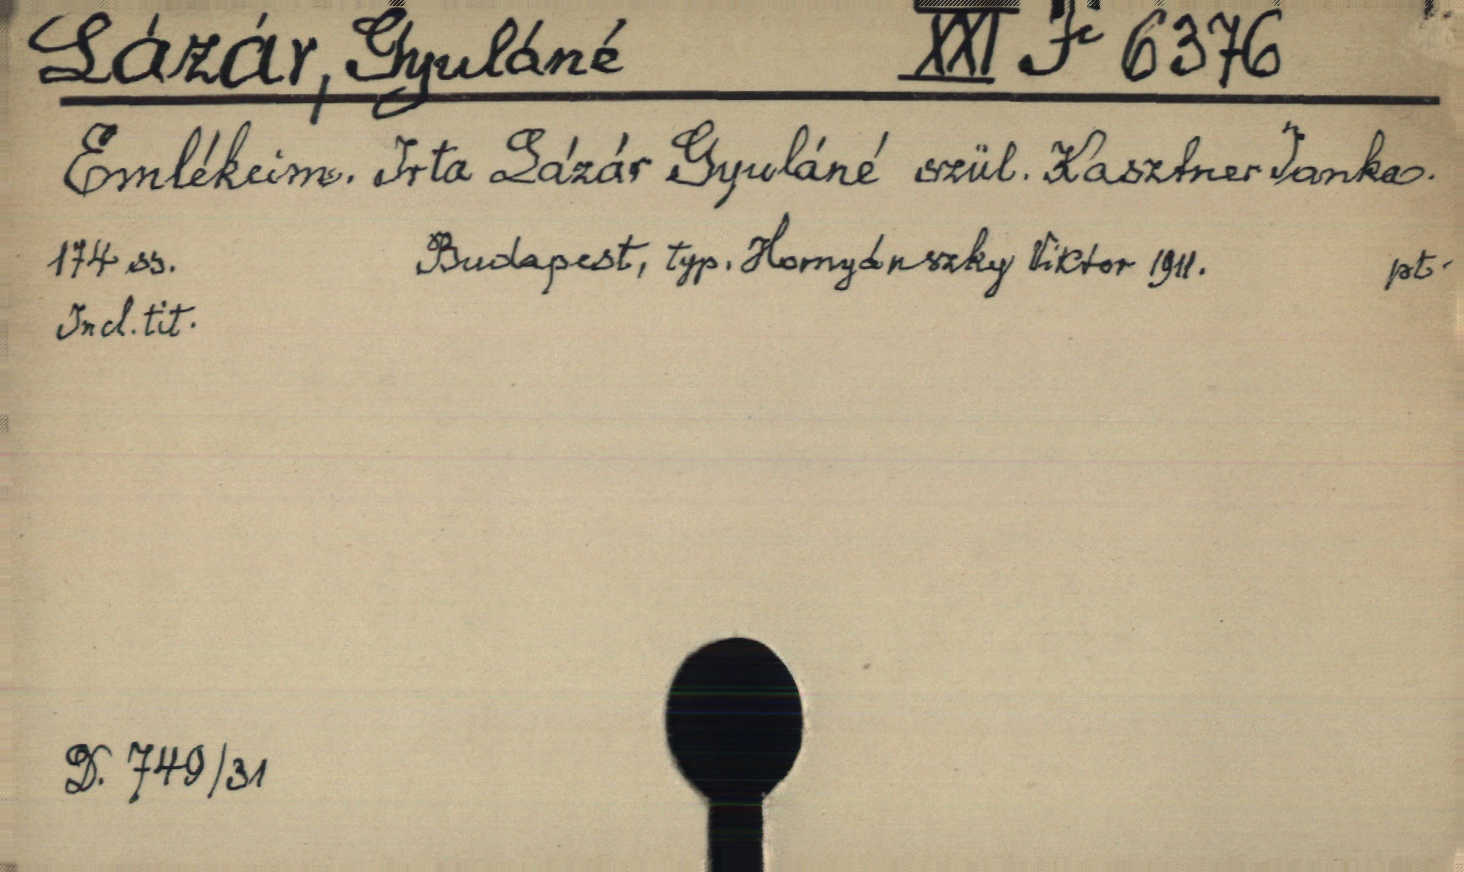 Lázár, Gyuláné XXI Jc 6376
Emlékeim. Irta Lázár Gyuláné szül. Kasztner Janka.
174 ss. Budapest, typ. Hornyánszky Viktor 1911. pt.
Incl. tit.
D. 749/31